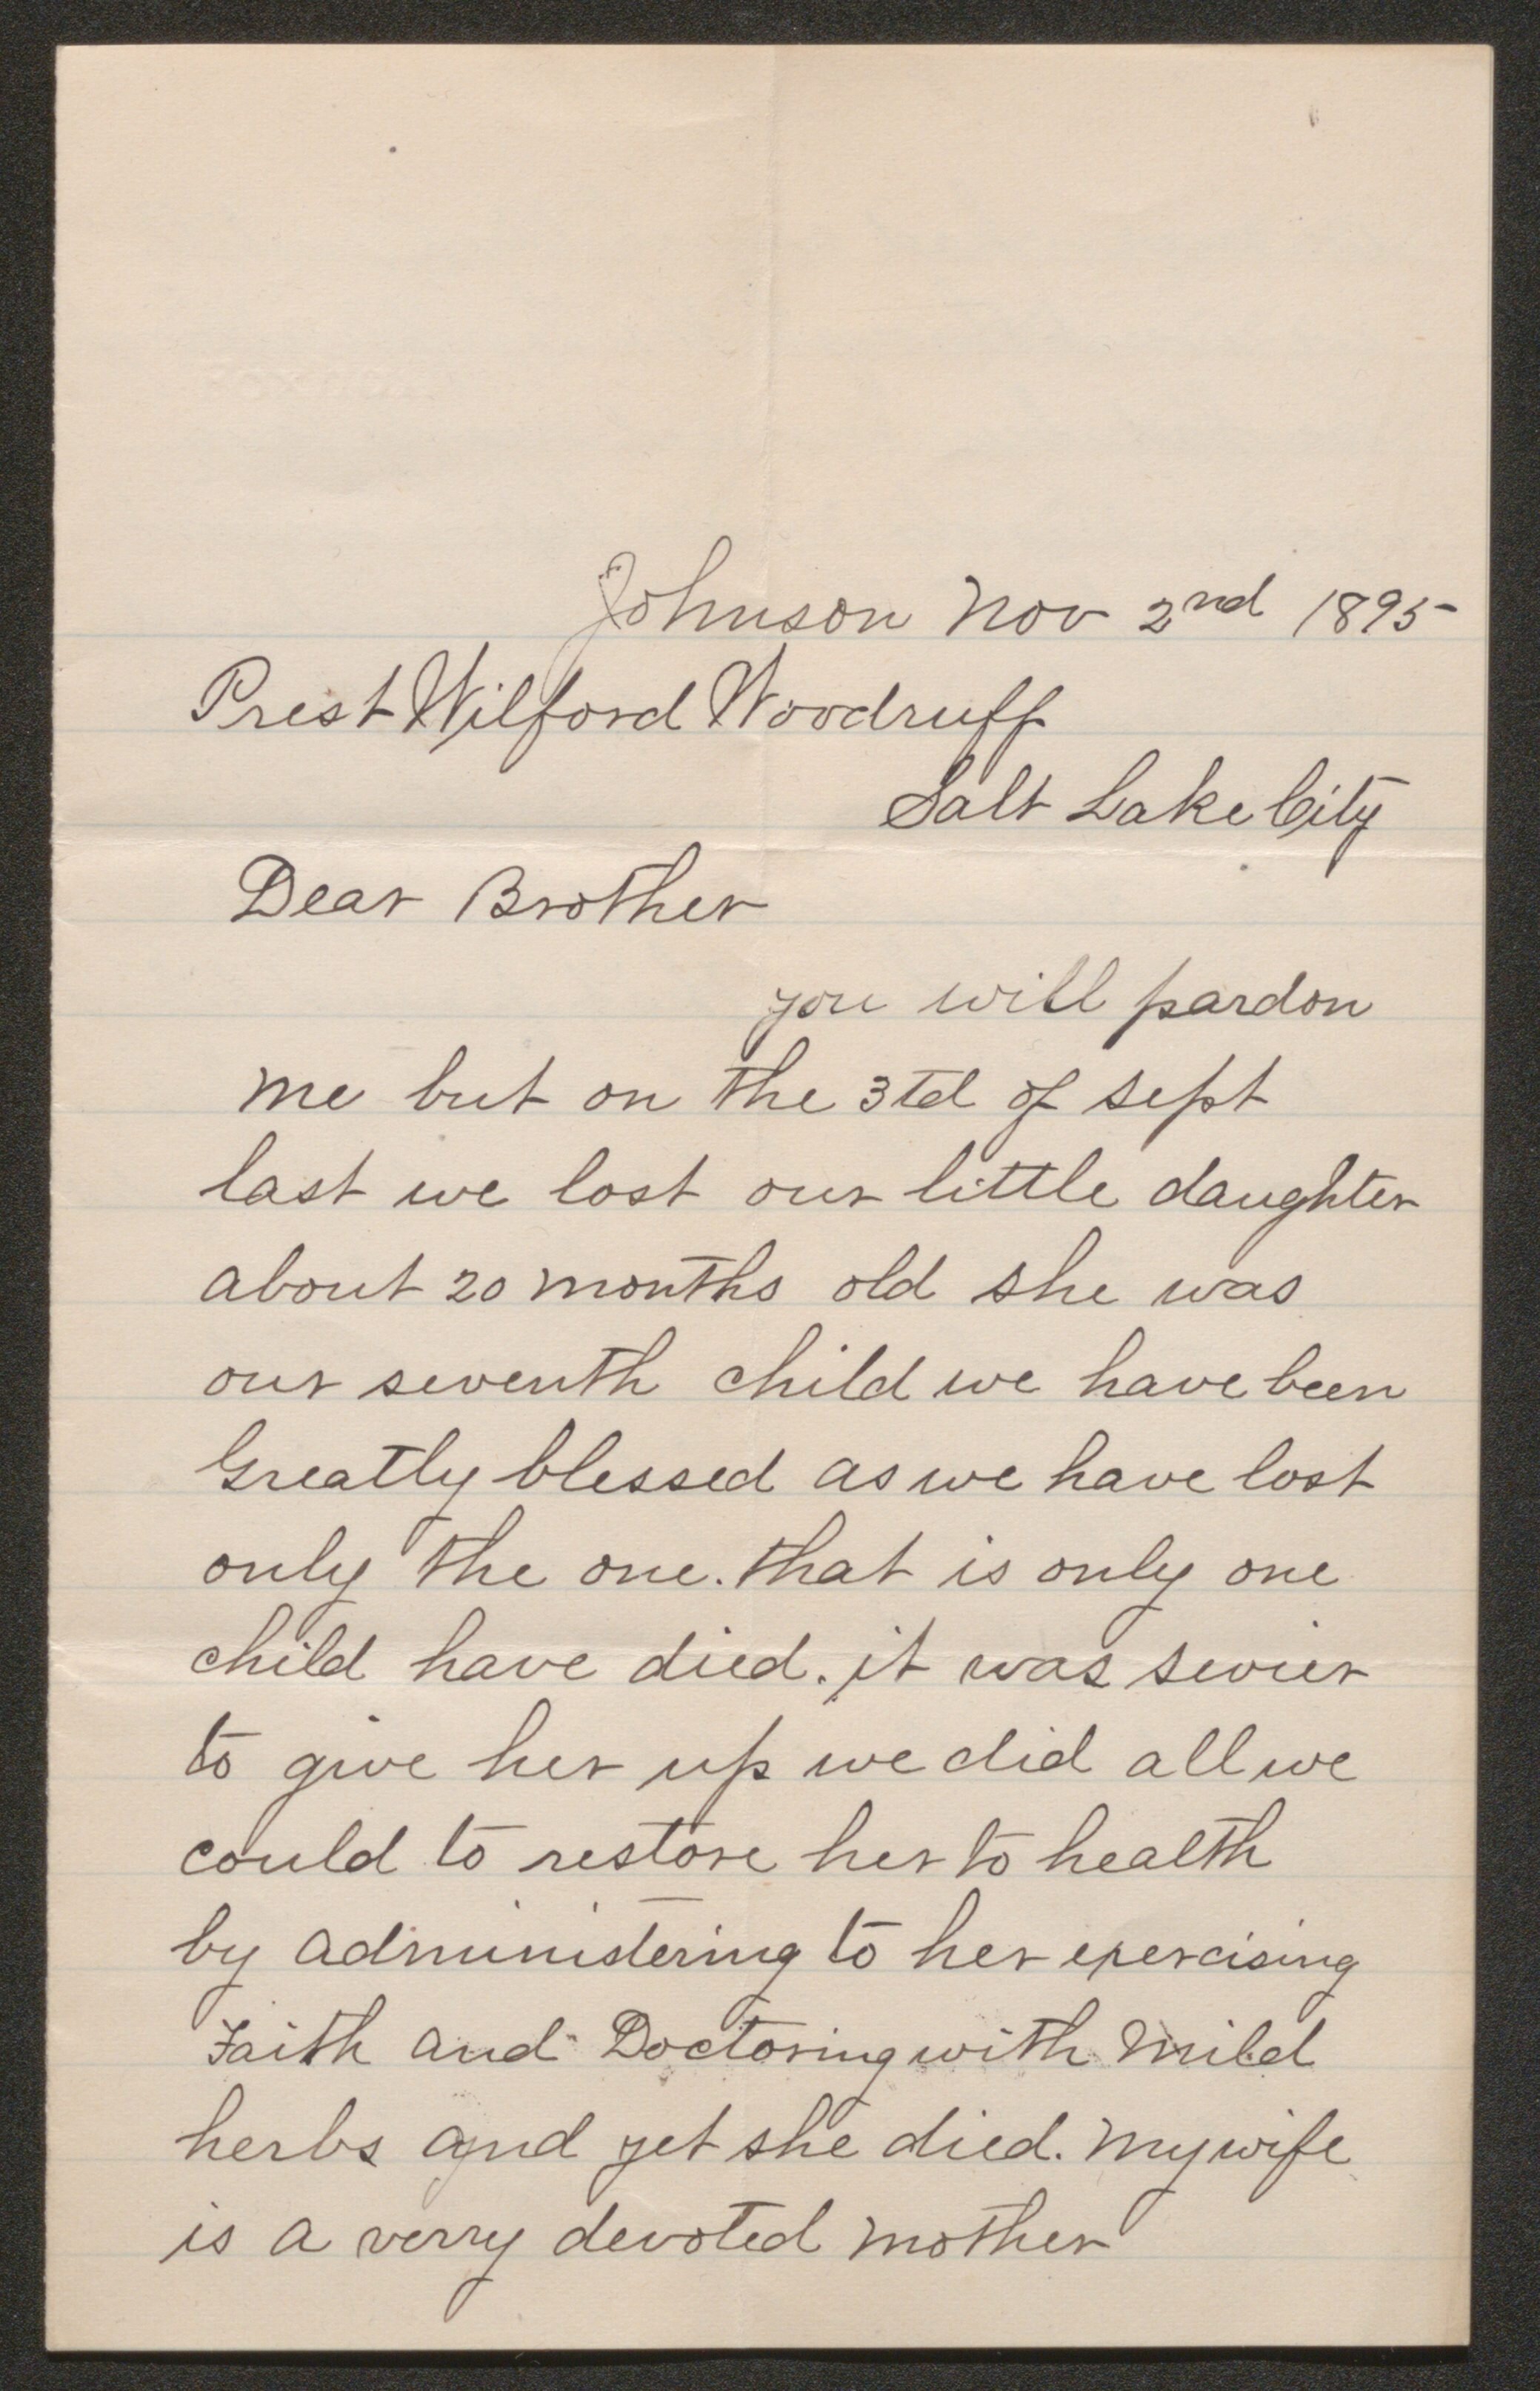 Johnson Nov 2nd 1895
Prest Wilford Woodruff
Salt Lake City
Dear Brother
you will pardon
me but on the 3td of sept
last we lost our little daughter
about 20 months old she was
our seventh child we have been
Greatly blessed as we have lost
only the one. that is only one
child have died. it was sevier
to give her up we did all we
could to restore her to health
by administering to her exercising
Faith and Doctoring with mild
herbs and yet she died. My wife
is a verry devoted mother